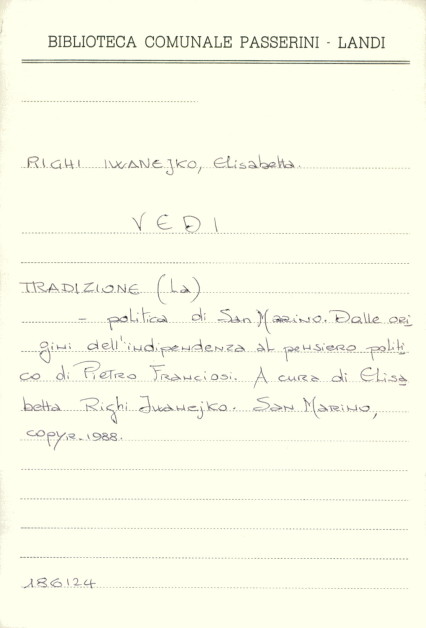 BIBLIOTECA COMUNALE PASSERINI - LANDI
RIGHI IWANEJKO, Elisabetta.
VEDI
TRADIZIONE (La)
- politica di San Marino. Dalle ori
gini dell'indipendenza al pensiero politi
co di Pietro Franciosi. A cura di Elisa
betta Righi Iwanejko. San Marino,
copyr. 1988.
186124